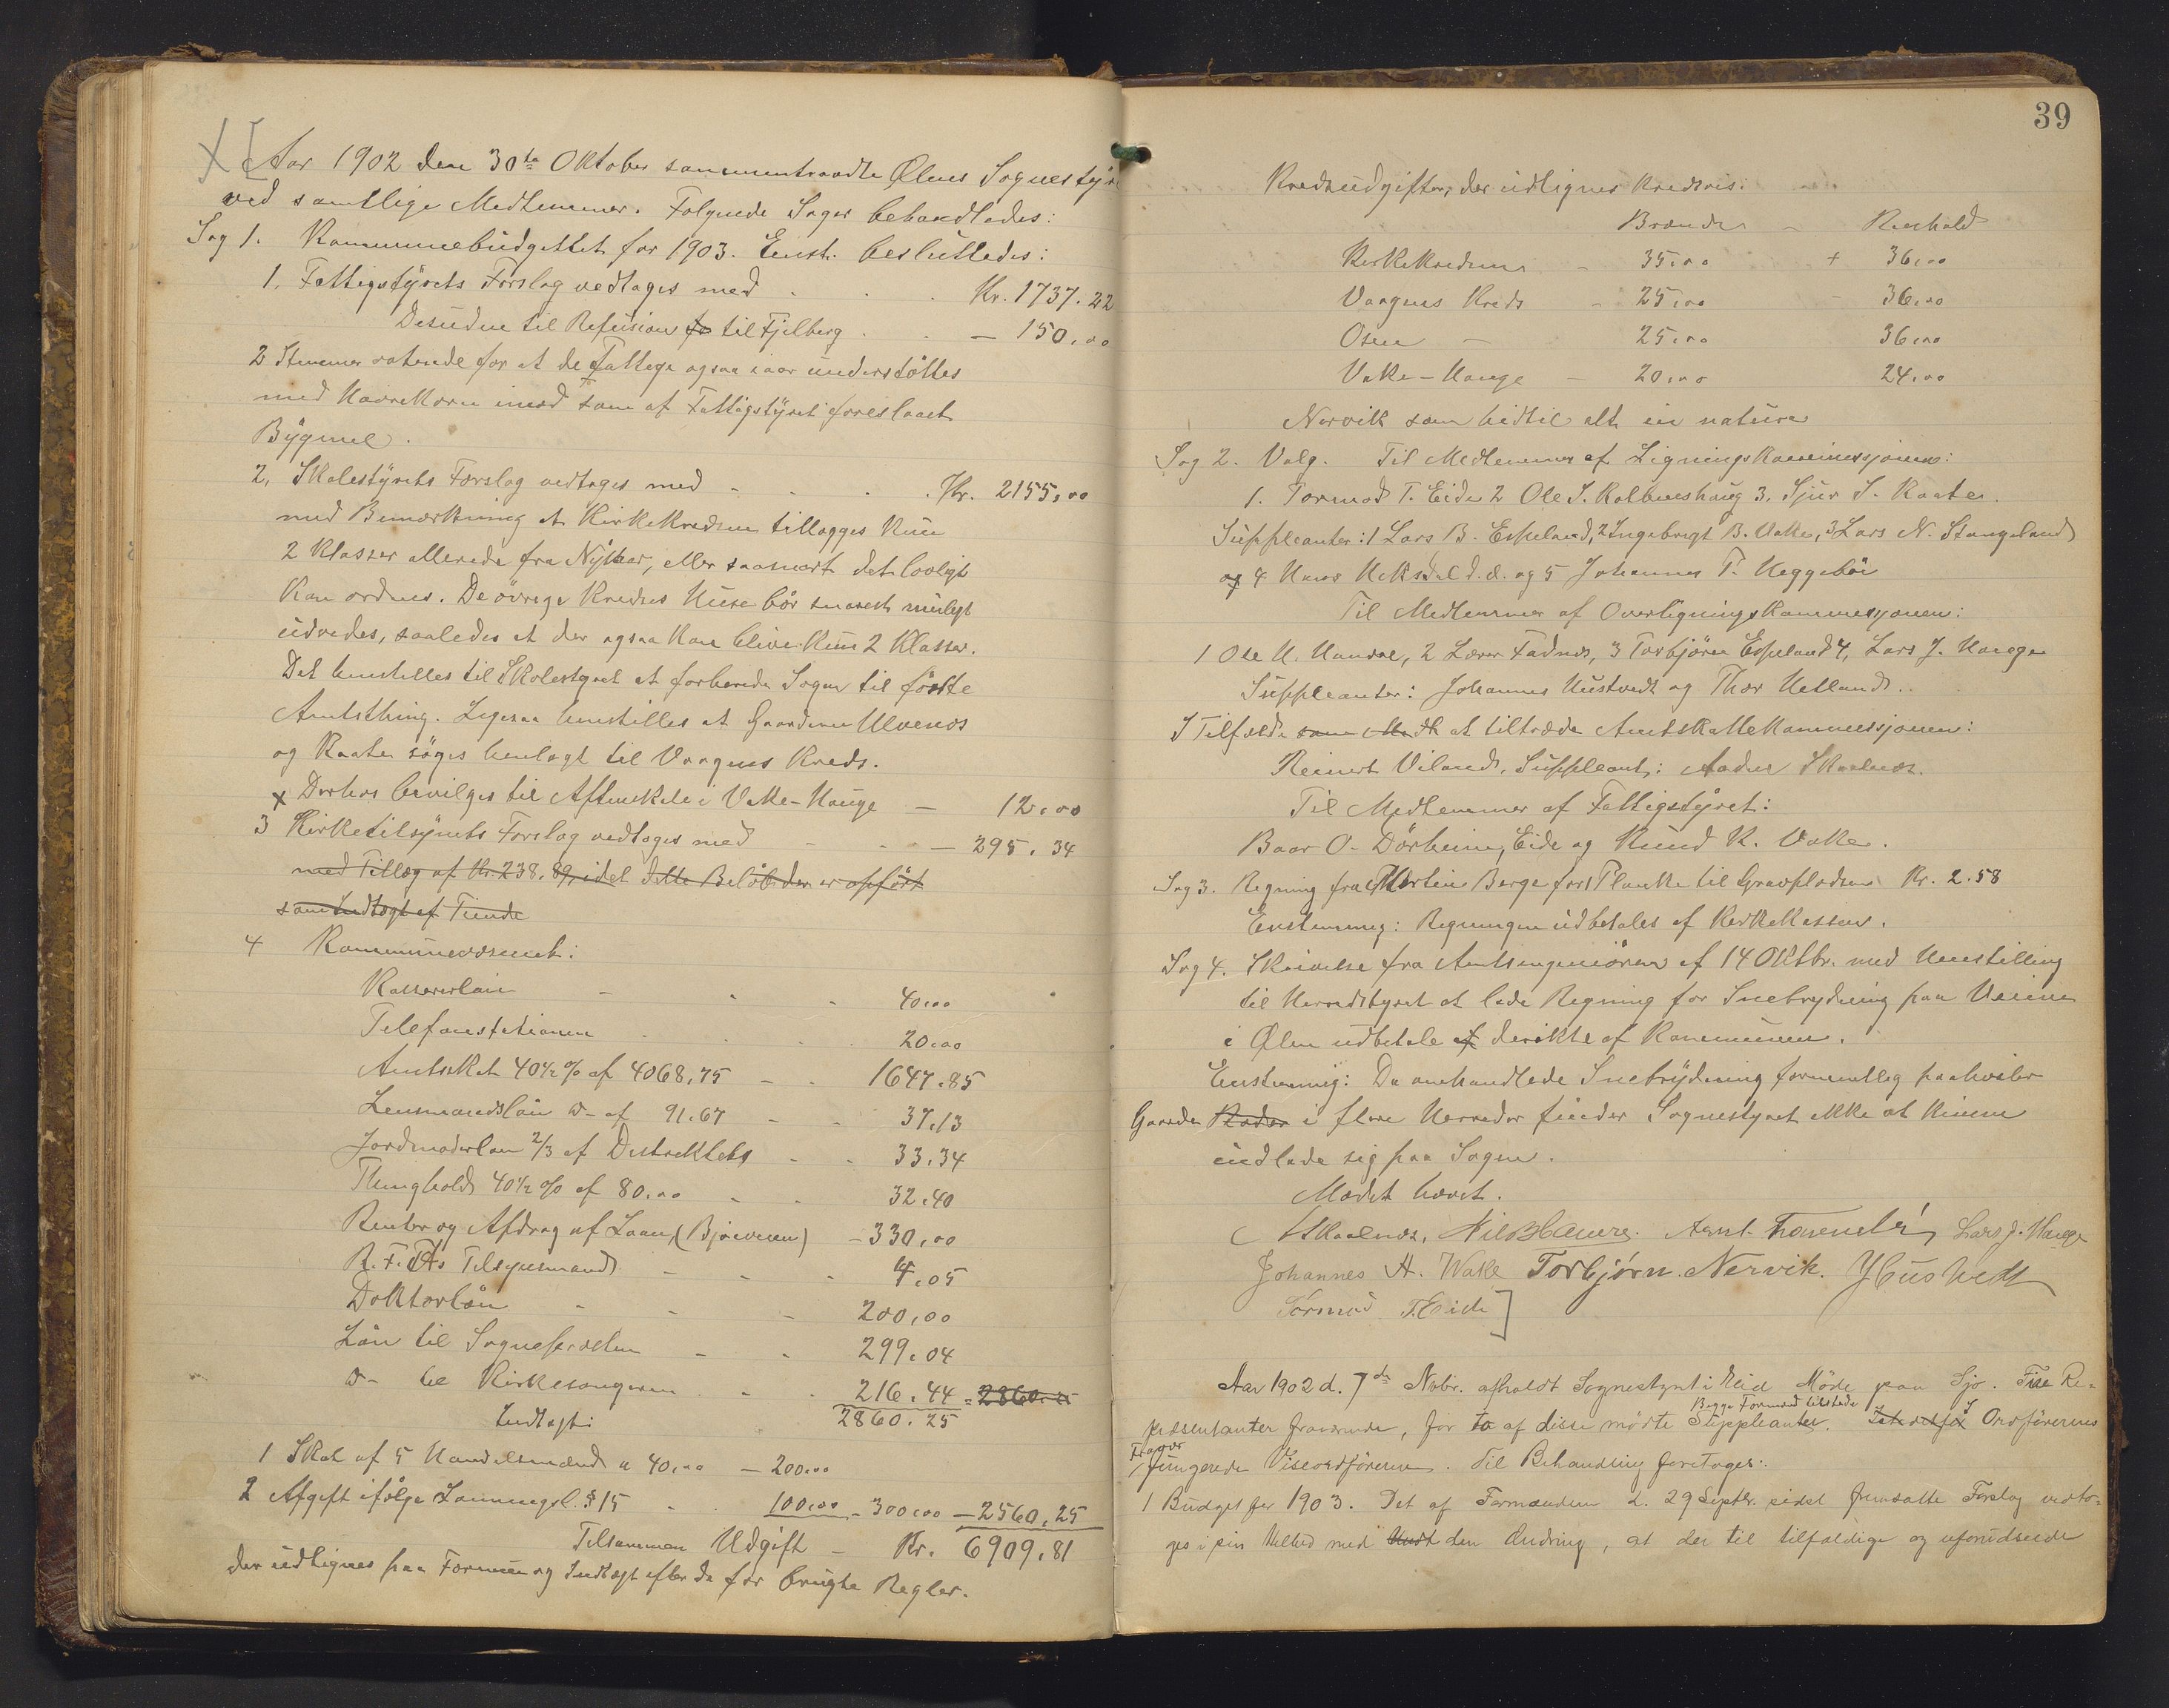 Aar 1902 den 30te Oktober sammentraadte Ølens Sognesty
ved samtlige Medlemmer. Følgende Sager behandledes:
Sag 1. Kommunebudgettet for 1903. Enst. besluttedes:
1. Fattigstyrets Forslag vedtages med . . . Kr. 1737.22
Desuden til Refusion fo til Fjelberg . . — 150,00
2 Stemmer votende for at de Fattige ogsaa iaar understöttes
med Havrekorn imod som af Fattigstyret foreslaaet
Bygmel.
2, Skolestyrets Forslag vedtages med - . . . Kr. 2155,00
med Bemærkning at Kirkekredsen tillægges kun
2 Klasser allerede fra Nytaar, eller saasnart det lovligt
kan ordnes. De övrige Kredses Huse bör snarest muligt
udvides, saaledes at der ogsaa kan blive kun 2 Klasser.
Det henstilles til Skolestyret at forberede Sagen til förstte
Amtsthing. Ligesaa henstilles at Gaardene Ulvenes
og Kaaten söges henlagt til Vaagnes Kreds.
x Derhos bevilges til Aftenskole i Vake-Hauge — 12,00
3 Kirketilsynets Forslag vedtages med - - — 295.34
med Tillæg af Kr. 238.89, idet dette Belöb der er opfört
som Indtægt af Tiende
4 Kommunevæsenet:
Kassererlön - - - 40,00
Telefonstationen . . . 20,00
Amtsskat 40½ % af 4068,75 - - 1647.85
Lensmandslön D- af 91.67 - - 37.13
Jordmoderlön 2/3 af Distriktets - - 33.34
Thinghold 40½ % af 80,00 - - 32.40
Renter og Afdrag af Laan (Bjoveien) - 330,00
B.F. Tilsynsmand - - - 4.05
Doktorlön - - - 200,00
Lön til Sognepresten - - 299.04
D- til Kirkesangeren - - 216.44 = 2860.25
Indtægt: 2860.25
1 Skat af 5 Handelsmænd a 40,00 — 200,00
2 Afgift ifölge Lovningsl. § 15 - . 100,00 - 300,00 — 2560,25
Tilsammen Udgift — Kr. 6909.81
der udlignes paa Formue og Indtægt efter de för brugte Regler.
39
Kredsudgifter, der udlignes kredsvis:
Brænde - Renhold
Kirkekredsen - 35,00 + 36,00
Vaagnes Kreds - 25,00 - 36,00
Osen — 25,00 36,00
Vake-Hauge — 20,00 24,00
Nervik som hidtil alt in natura
Sag 2. Valg. Til Medlemmer af Ligningskommissjonen:
1. Tormod T. Eide 2 Ole S. Kalbeueshaug 3, Sjur S. Kaaten.
Suppleanter: 1 Lars B. Espeland, 2 Ingebrigt B. Vake, 3 Lars N. Stangeland
og 4 Hans Høksdal d. æ. og 5 Johannes T. Heggebö
Til Medlemmer af Overligningskommissjonen:
1 Ole H. Hamre, 2 Lærer Fadnes, 3 Torbjörn Espeland 4, Lars J. Hauge
Suppleanter: Johannes Hustvedt og Thor Hetland..
I Tilfælde som Medl at tiltræde Amtskattekommissjonen:
Reinert Viland, Suppleant: Aadne Skaalnæs.
Til Medlemmer af Fattigstyret:
Baar O. Dörheim, Eide og Knud K. Vake.
Sag 3. Regning fra Martin Berge for 1 Planke til Gravpladsen Kr. 2.58
Enstemmig: Regningen udbetales af Kirkekassen.
Sag 4. Skrivelse fra Amtsingeniören af 14 Oktbr. med Henstilling
til Herredstyret at lade Regning for Snebrydning paa Veiene
i Ølen udbetale af direkte af Kommunen.
Enstemmig: Da omhandlede Snebrydning formentlig paahviler
Gaarde Roder i flere Herreder finder Sognestyret ikke at kunne
indlade sig paa Sagen.
Mödet hævet.
Skaalnæs, Nils Hamre. Arnt Lars J. Hauge
Johannes A. Wake Torbjørn Nervik. J Hustvedt
Tormod T. Eide ]
Aar 1902 d. 7de Novbr. afholdt Sognestyret i Eid Möde paa Sjo. Fire Re-
præsentanter fraværende, for to af disse mödte Suppleanter. Begge Formænd tilstede Istedetfor I Ordförerens
Fravær fungerede Viceordföreren. Til Behandling foretoges:
1 Budget for 1903. Det af Formanden d. 29 Septbr. sidst fremsatte Forslag vedto-
ges i sin Helhed med Undt den Ændring, at der til tilfældige og uforudseede